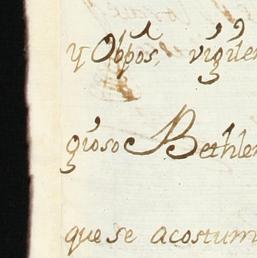 y Obpos, vigilen
gioso Bethlem
que se acostum